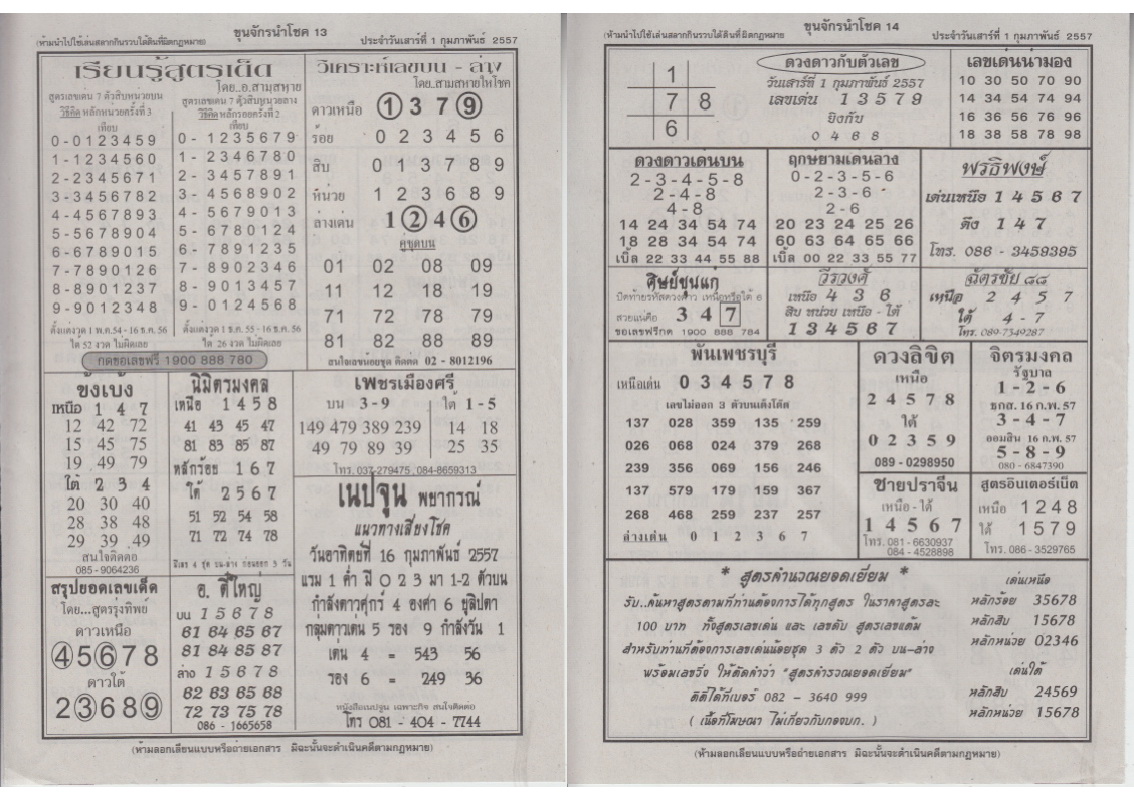 ขุนจักรนำโชค 13
(ห้ามนำไปใช้เล่นสลากกินรวบได้ดินที่ผิดกฎหมาย)
ประจำวันเสาร์ที่ 1 กุมภาพันธ์ 2557
เรียนรู้สูตรเด็ด
โดย..อ.สามสหาย
สูตรเลขเด่น 7 ตัวสิบหน่วยบน
วิธีคิด หลักหน่วยครั้งที่ 3
เทียบ
0 - 0 1 2 3 4 5 9
1 - 1 2 3 4 5 6 0
2 - 2 3 4 5 6 7 1
3 - 3 4 5 6 7 8 2
4 - 4 5 6 7 8 9 3
5 - 5 6 7 8 9 0 4
6 - 6 7 8 9 0 1 5
7 - 7 8 9 0 1 2 6
8 - 8 9 0 1 2 3 7
9 - 9 0 1 2 3 4 8
ตั้งแต่งวด 1 พ.ค.54 - 16 ธ.ค. 56
ใด 52 งวด ไม่ผิดเลย
สูตรเลขเด่น 7 ตัวสิบหน่วยล่าง
วิธีคิด หลักร้อยครั้งที่ 2
เทียบ
0 - 1 2 3 5 6 7 9
1 - 2 3 4 6 7 8 0
2 - 3 4 5 7 8 9 1
3 - 4 5 6 8 9 0 2
4 - 5 6 7 9 0 1 3
5 - 6 7 8 0 1 2 4
6 - 7 8 9 1 2 3 5
7 - 8 9 0 2 3 4 6
8 - 9 0 1 3 4 5 7
9 - 0 1 2 4 5 6 8
ตั้งแต่งวด 1 ธ.ค. 55 - 16 ธ.ค. 56
ใด 26 งวด ไม่ผิดเลย
กดขอเลขฟรี 1900 888 780
วิเคราะห์เลขบน - ล่าง
โดย..สามสหายให้โชค
ดาวเหนือ 1 3 7 9
ร้อย 0 2 3 4 5 6
สิบ 0 1 3 7 8 9
หน่วย 1 2 3 6 8 9
ล่างเด่น 1 2 4 6
คู่ชุดบน
01 02 08 09
11 12 18 19
71 72 78 79
81 82 88 89
สนใจเลขน้อยชุด ติดต่อ 02 - 8012196
ชั่งเบ้ง
เหนือ 1 4 7
12 42 72
15 45 75
19 49 79
ใต้ 2 3 4
20 30 40
28 38 48
29 39 49
สนใจติดต่อ
085 - 9064236
นิมิตรมงคล
เหนือ 1 4 5 8
41 43 45 47
81 83 85 87
หลักร้อย 1 6 7
ใต้ 2 5 6 7
51 52 54 58
71 72 74 78
เพชรเมืองศรี
บน 3 - 9
149 479 389 239
49 79 89 39
ใต้ 1 - 5
14 18
25 35
โทร. 037-279475, 084-8659313
เนปจูน พยากรณ์
แนวทางเสี่ยงโชค
วันอาทิตย์ที่ 16 กุมภาพันธ์ 2557
แรม 1 ค่ำ มี 0 2 3 มา 1-2 ตัวบน
กำลังดาวศุกร์ 4 องศา 6 ยูลิปดา
กลุ่มดาวเด่น 5 รอง 9 กำลังวัน 1
เด่น 4 = 543 56
รอง 6 = 249 36
หนังสือเนปจูน เฉพาะกิจ สนใจติดต่อ
โทร 081 - 404 - 7744
สรุปยอดเลขเด็ด
โดย...สูตรรุ่งทิพย์
ดาวเหนือ
4 5 6 7 8
ดาวใต้
2 3 6 8 9
อ. ตี๋ใหญ่
บน 1 5 6 7 8
61 64 65 67
81 84 85 87
ล่าง 1 5 6 7 8
62 63 65 68
72 73 75 78
086 - 1665658
(ห้ามลอกเลียนแบบหรือถ่ายเอกสาร มิฉะนั้นจะดำเนินคดีตามกฎหมาย)
ขุนจักรนำโชค 14
(ห้ามนำไปใช้เล่นสลากกินรวบได้ดินที่ผิดกฎหมาย)
ประจำวันเสาร์ที่ 1 กุมภาพันธ์ 2557
1
7 8
6
ดวงดาวกับตัวเลข
วันเสาร์ที่ 1 กุมภาพันธ์ 2557
เลขเด่น 1 3 5 7 9
ยิงกับ
0 4 6 8
เลขเด่นน่ามอง
10 30 50 70 90
14 34 54 74 94
16 36 56 76 96
18 38 58 78 98
ดวงดาวเด่นบน
2 - 3 - 4 - 5 - 8
2 - 4 - 8
4 - 8
14 24 34 54 74
18 28 34 54 74
เบิ้ล 22 33 44 55 88
ฤกษ์ยามเด่นล่าง
0 - 2 - 3 - 5 - 6
2 - 3 - 6
2 - 6
20 23 24 25 26
60 63 64 65 66
เบิ้ล 00 22 33 55 77
พรธิพงษ์
เด่นเหนือ 1 4 5 6 7
ดึง 1 4 7
โทร. 086 - 3459395
ศิษย์ขุนแก่
3 4 7
ขอเลขฟรีกด 1900 888 784
วีรวงศ์
เหนือ 4 3 6
สิบ หน่วย เหนือ - ใต้
1 3 4 5 6 7
ฉัตรชัย ๘๘
เหนือ 2 4 5 7
ใต้ 4 - 7
โทร. 089-7349287
พันเพชรบุรี
เหนือเด่น 0 3 4 5 7 8
เลขไม่ออก 3 ตัวบนเต็งโต๊ด
137 028 359 135 259
026 068 024 379 268
239 356 069 156 246
137 579 179 159 367
268 468 259 237 257
ล่างเด่น 0 1 2 3 6 7
ดวงลิขิต
เหนือ
2 4 5 7 8
ใต้
0 2 3 5 9
089 - 0298950
จิตรมงคล
รัฐบาล
1 - 2 - 6
ธกส. 16 ก.พ. 57
3 - 4 - 7
ออมสิน 16 ก.พ. 57
5 - 8 - 9
080 - 6847390
ชายปราจีน
เหนือ - ใต้
1 4 5 6 7
โทร. 081 - 6630937
084 - 4528898
สูตรอินเตอร์เน็ต
เหนือ 1 2 4 8
ใต้ 1 5 7 9
โทร. 086 - 3529765
* สูตรคำนวณยอดเยี่ยม *
รับ..ค้นหาสูตรตามที่ท่านต้องการได้ทุกสูตร ในราคาสูตรละ
100 บาท ทั้งสูตรเลขเด่น และ เลขดับ สูตรเลขแต้ม
สำหรับท่านที่ต้องการเลขเด่นน้อยชุด 3 ตัว 2 ตัว บน-ล่าง
พร้อมเลขวิ่ง ให้ติดคำว่า "สูตรคำรวณยอดเยี่ยม"
ติดีได้ที่เบอร์ 082 - 3640 999
( เนื้อที่โฆษณา ไม่เกี่ยวกับกองบก. )
เด่นเหนือ
หลักร้อย 35678
หลักสิบ 15678
หลักหน่วย 02346
เด่นใต้
หลักสิบ 24569
หลักหน่วย 15678
(ห้ามลอกเลียนแบบหรือถ่ายเอกสาร มิฉะนั้นจะดำเนินคดีตามกฎหมาย)